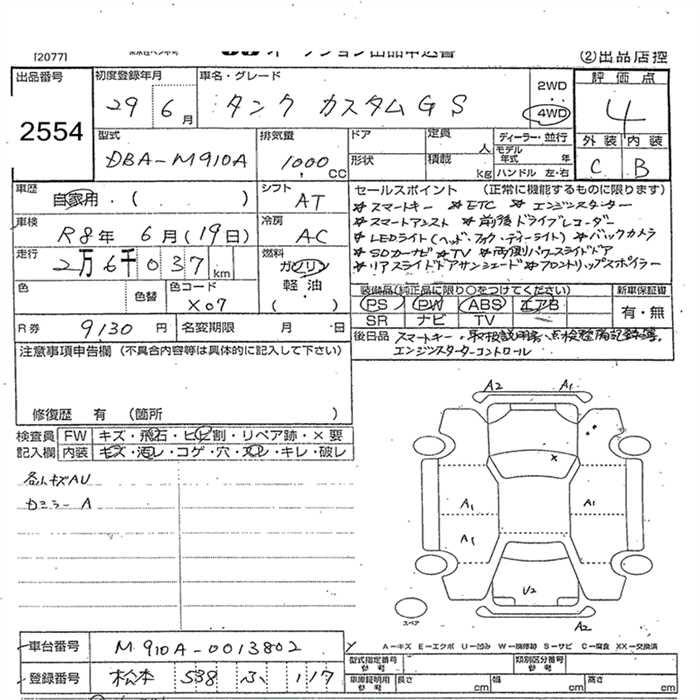 [2077]
②出品店控
出品番号
2554
初度登録年月
29 6月
車名・グレード
タンク カスタムGS
2WD
4WD
評価点
4
外装 内装
C B
型式
DBA-M910A
排気量
1000 CC
ドア
形状
定員
人
積載
kg
ディーラー・並行
モデル年式 年
ハンドル 左・右
車歴
自家用・( )
シフト
AT
車検
R8年 6月(19日)
冷房
AC
走行
2万6千037km
燃料
ガソリン
軽・油
( )
色
色替
色コード
X07
R券 9,130円
名変期限 月・日
セールスポイント (正常に機能するものに限ります)
☆スマートキー ☆ETC ☆エンジンスターター
☆スマートアシスト ☆前後ドライブレコーダー
☆LEDライト(ヘッド・フォグ・ディーライト) ☆バックカメラ
☆SDカーナビ ☆TV ☆両側パワースライドドア
☆リアスライドドアサンシェード ☆フロントリップスポイラー
装備品(純正品に限り○をつけてください)
PS PW ABS エアB
SR ナビ TV
新車保証書
有・無
後日品 スマートキー・取扱説明書・点検整備記録簿・
エンジンスターターコントロール
注意事項申告欄 (不具合内容等は具体的に記入して下さい)
修復歴 有 (箇所 )
検査員記入欄
FW キズ・飛石・ヒビ割・リペア跡・×要
内装 キズ・汚レ・コゲ・穴・スレ・キレ・破レ
各Aキズ AU
カミラー A
A2 A1
A1 A1
A1
U2
A2
スペア
A-キズ E-エクボ U-凹み W-補修跡 S-サビ C-腐食 XX-交換済
車台番号 M910A-0013802
登録番号 松本 538 ふ 117
型式指定番号 参考
類別区分番号 参考
車庫証明用 参考
長さ cm 幅 cm 高さ cm